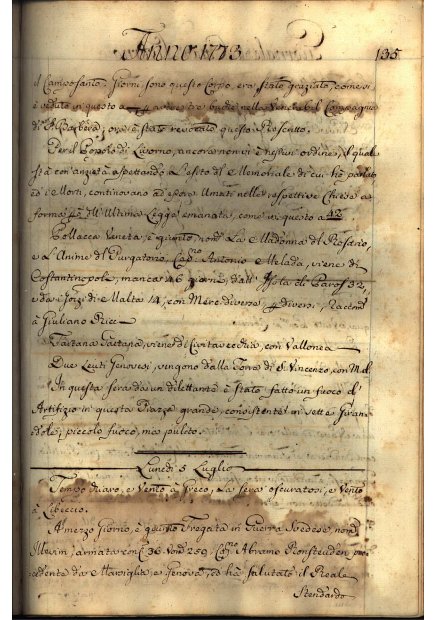 Anno 1773 135
il Camposanto, Giorni, sono questo Corpo, era stato graziato, come si
è veduto in questo a 74 a tre buche nella Venerabil Compagnia
di S. Barbera, ora è stato revocato questo Rescritto.
Per il Popolo di Livorno, ancora non vi è nessun ordine, il quale
stà con anzietà aspettando l'esito del Memoriale di cui hò parlato
ed i Morti, continovano ad esser Umati nelle respettive Chiese a
forma dell'Ultima Legge emanata, come in questo a 42
Pollacca Veneta, è giunto, nom.ta La Madonna del Rosario,
e L'Anime del Purgatorio, Cap.no Antonio Melada, viene di
Costantinopoli, manca 46 giorni, dall'Isola di Paros 32,
e da i Gozi di Malta 14, con Merc. diverse, p diversi, Racc.
à Giuliano Ricci
Tartana Gaetana, viene di Civitavecchia, con Vallonea
Due Leuti Genovesi, vengono dalla Torre di S. Vincenzo, con
In questa sera da un dilettante è stato fatto un fuoco d'
Artifizio in questa Piazza grande, consistente in sette Giran-
dole; piccolo fuoco, ma pulito.
Lunedì 5 Luglio
Tempo chiaro, e Vento à Greco, La sera oscuratosi, e Vento
à Libeccio.
A mezzo Giorno, è giunto Fregata in Guerra Svedese, nom.ta
Illerim, armata con C. 36 Uom. 250, Cap.no Abramo
cedente da Marsiglia, e Genova, ed hà salutato il Reale
Stendardo